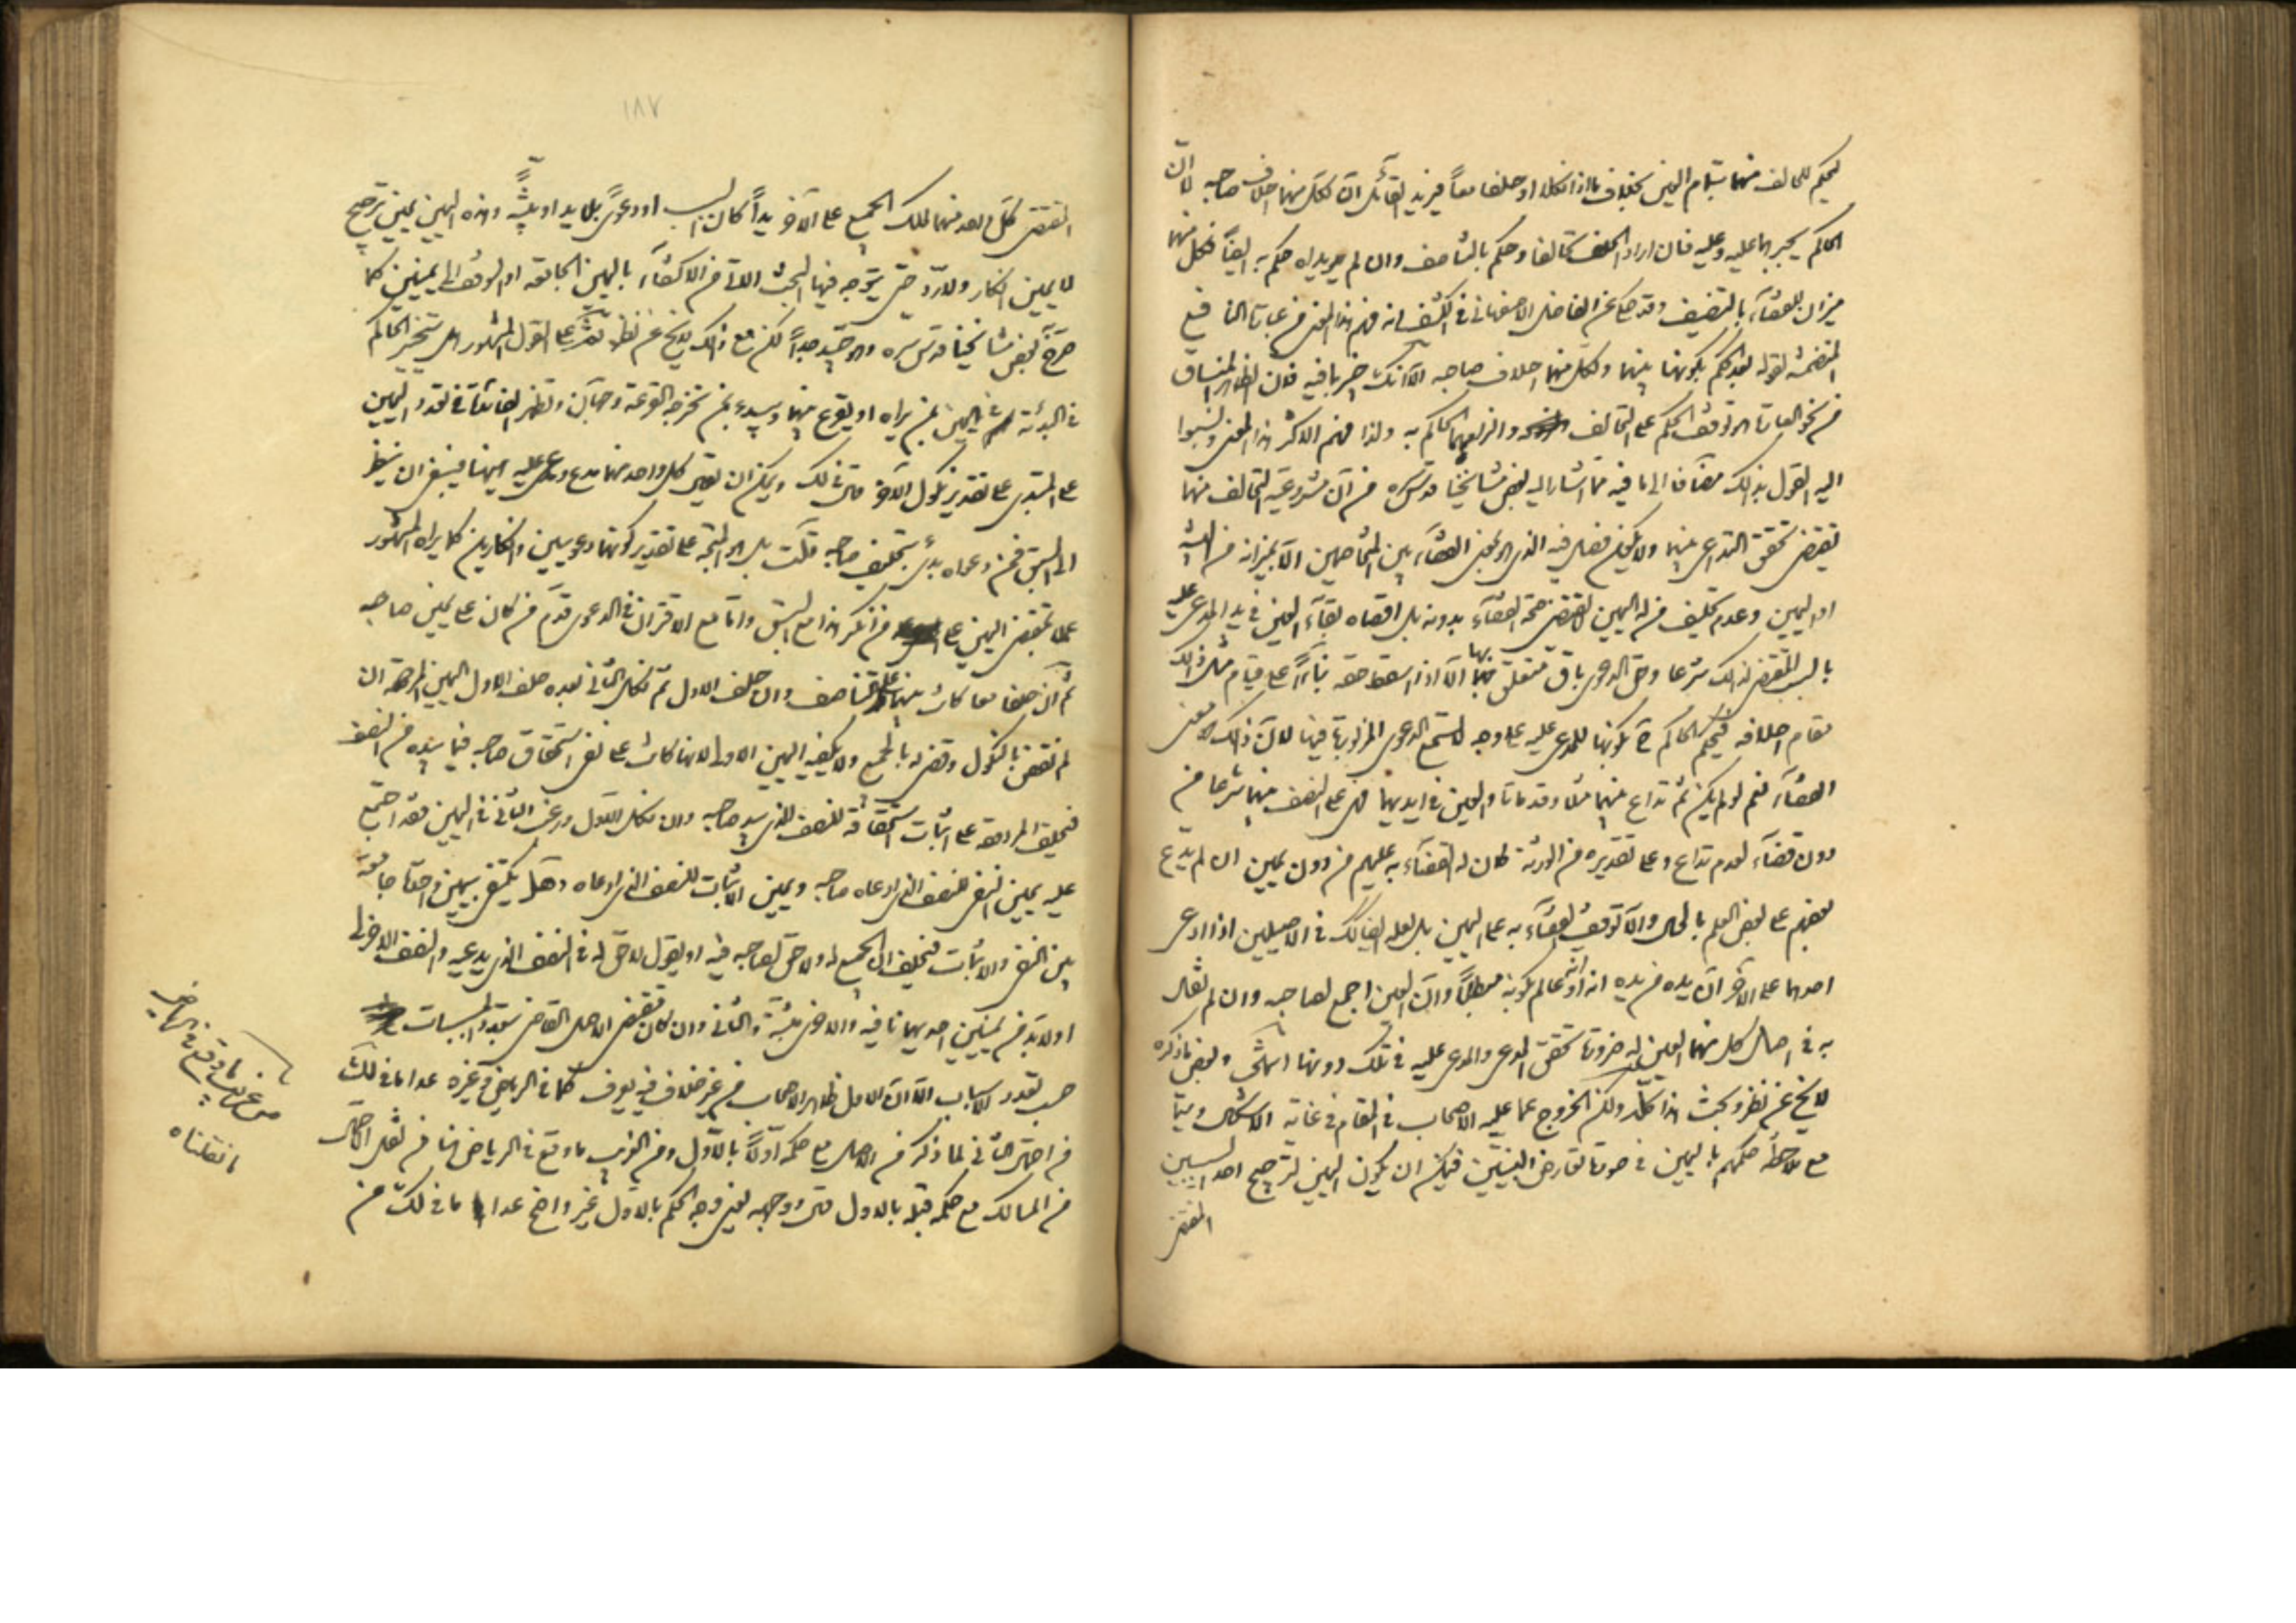 ليحكم للحالف منهما بتمام العين بخلاف ما اذا نكلا او حلفا معاً فيزيد القائل ان لكل منهما احلاف صاحبه لا ان
الحاكم يجبرهما عليه وعليه فان اراد الحلف تحالفا وحكم بالتناصف وان لم يريداه حكم به ايضاً فنكل منهما
ميزان للقضاء بالتنصيف وقد حكى عن الفاضل الاصفهاني في الكشف انه فهم هذا المعنى من عبارة النافع
المتضمنة لقوله بعد الحكم بكونها بينهما ولكل منهما احلاف صاحبه الا انك خبير بما فيه فان الظاهر المنساق
من نحو العبارة هو توقف الحكم على التحالف والزامهما الحاكم به ولذا فهم الاكثر هذا المعنى ونسبوا
اليه القول بذلك مضافا الى ما فيه مما اشار اليه بعض مشايخنا قدس سره من ان مشروعية التحالف منهما
يقتضي تحقق التداعي بينهما ولا يمكن فصل فيه الذي هو بمعنى القضاء بين المتخاصمين الا بميزانه من البينة
او اليمين وعدم تكليف من له اليمين لا يقتضي صحة القضاء بدونه بل اقصاه بقاء العين في يد المدعى عليه
بالسبب المقتضي لذلك شرعا وحق الدعوى باق متعلق بها الا اذا اسقط حقه بناءً على قيام مثل ذلك
مقام احلافه فيحكم الحاكم ح بكونها للمدعى عليه على وجه لا تسمع الدعوى المزبورة فيها لان ذلك هو معنى
القضاء نعم لو لم يكن ثم تداع بينهما مثلا وقد ماتا والعين في ايديهما فهي على النصف بينهما شرعا من
دون قضاء لعدم تداع وعلى تقديره من الورثة كان له القضاء به عليهم من دون يمين ان لم يدع
بعضهم على بعض العلم بالحال والا توقف القضاء به على اليمين بل لعله ايضا كذلك في الاصيلين اذا ادعى
احدهما على الاخر ان يده من يده انه عالم بكونه مبطلاً وان العين اجمع لصاحبه وان لم نقل
به في اصل كل منهما العين له ضرورة تحقق المدعي والمدعى عليه في تلك دونها انتهى وبعض ما ذكره
لا يخلو عن نظر وبحث هذا كله ولكن الخروج عما عليه الاصحاب في المقام في غاية الاشكال وسيما
مع ملاحظة حكمهم باليمين في صورة تعارض البينتين فيمكن ان يكون اليمين لترجيح احد السببين
المقتضي
١٨٧
المقتضي لكل واحد منهما لملك الجميع على الآخر يداً كان السبب او دعوىً بلا يد او بينةً وهذه اليمين يمين ترجيح
لا يمين انكار ولا رد حتى يتوجه فيها البحث الاتي من الاكتفاء باليمين الجامعة او التوقف الى يمينين كما
صرح بعض مشايخنا قدس سره وهو جيد جداً لكن مع ذلك لا يخلو عن نظر ثم على القول المشهور هل يتخير الحاكم
في البدئة في اليمين بمن يراه او يقرع بينهما ويبدء بمن تخرجه القرعة وجهان وتظهر الفائدة في تعدد اليمين
على المبتدي على تقدير نكول الآخر قال في لك ويمكن ان يقال كل واحد منهما مدع ومدعى عليه ايهما فينبغي ان ينظر
الى السبق فمن دعواه بدئ بتحليف صاحبه قلت بل هو المتجه على تقدير كونهما دعويين وانكارين كما يراه المشهور
عملا بمقتضى اليمين على من انكر هذا مع السبق واما مع الاقتران في الدعوى قدم من كان على يمين صاحبه
ثم ان حلفا معا كانت بينهما على التناصف وان حلف الاول ثم نكل الثاني بعده حلف الاول اليمين المردودة ان
لم نقض بالنكول وقضي له بالجميع ولا يكفيه اليمين الاولى لانها كانت على نفى استحقاق صاحبه فيما بيده من النصف
فيحلف المردودة على اثبات استحقاقه للنصف الذي بيد صاحبه وان نكل الاول ورغب الثاني في اليمين فقد اجتمع
عليه يمين النفى للنصف الذي ادعاه صاحبه ويمين الاثبات للنصف الذي ادعاه وهل يكتفي بيمين واحدة جامعة
بين النفى والاثبات فيحلف ان الجميع له ولا حق لصاحبه فيه او يقول لا حق له في النصف الذي يدعيه والنصف الاخر لى
او لابد من يمينين احديهما نافية والاخرى مثبتة والثاني وان كان مقتضى الاصل القاضي بتعدد المسببات
حسب تعدد الاسباب الا ان الاول ظاهر الاصحاب من غير خلاف فيه يعرف كما في الرياض وغيره عدا ما في لك
من احتمال الثاني لما ذكر من الاصل مع حكمه اولاً بالاول ومن الغريب ما وقع في الرياض هنا من نقل الاحتمال
من المسالك مع حكمه قبله بالاول قال ووجهه يعنى وجه الحكم بالاول غير واضح عدا ما في لك من
من غريب ما وقع في الرياض
ما نقلناه